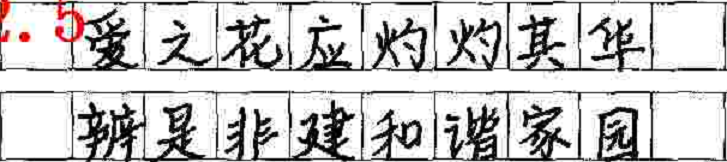 2.5
爱之花应灼灼其华
辨是非建和谐家园